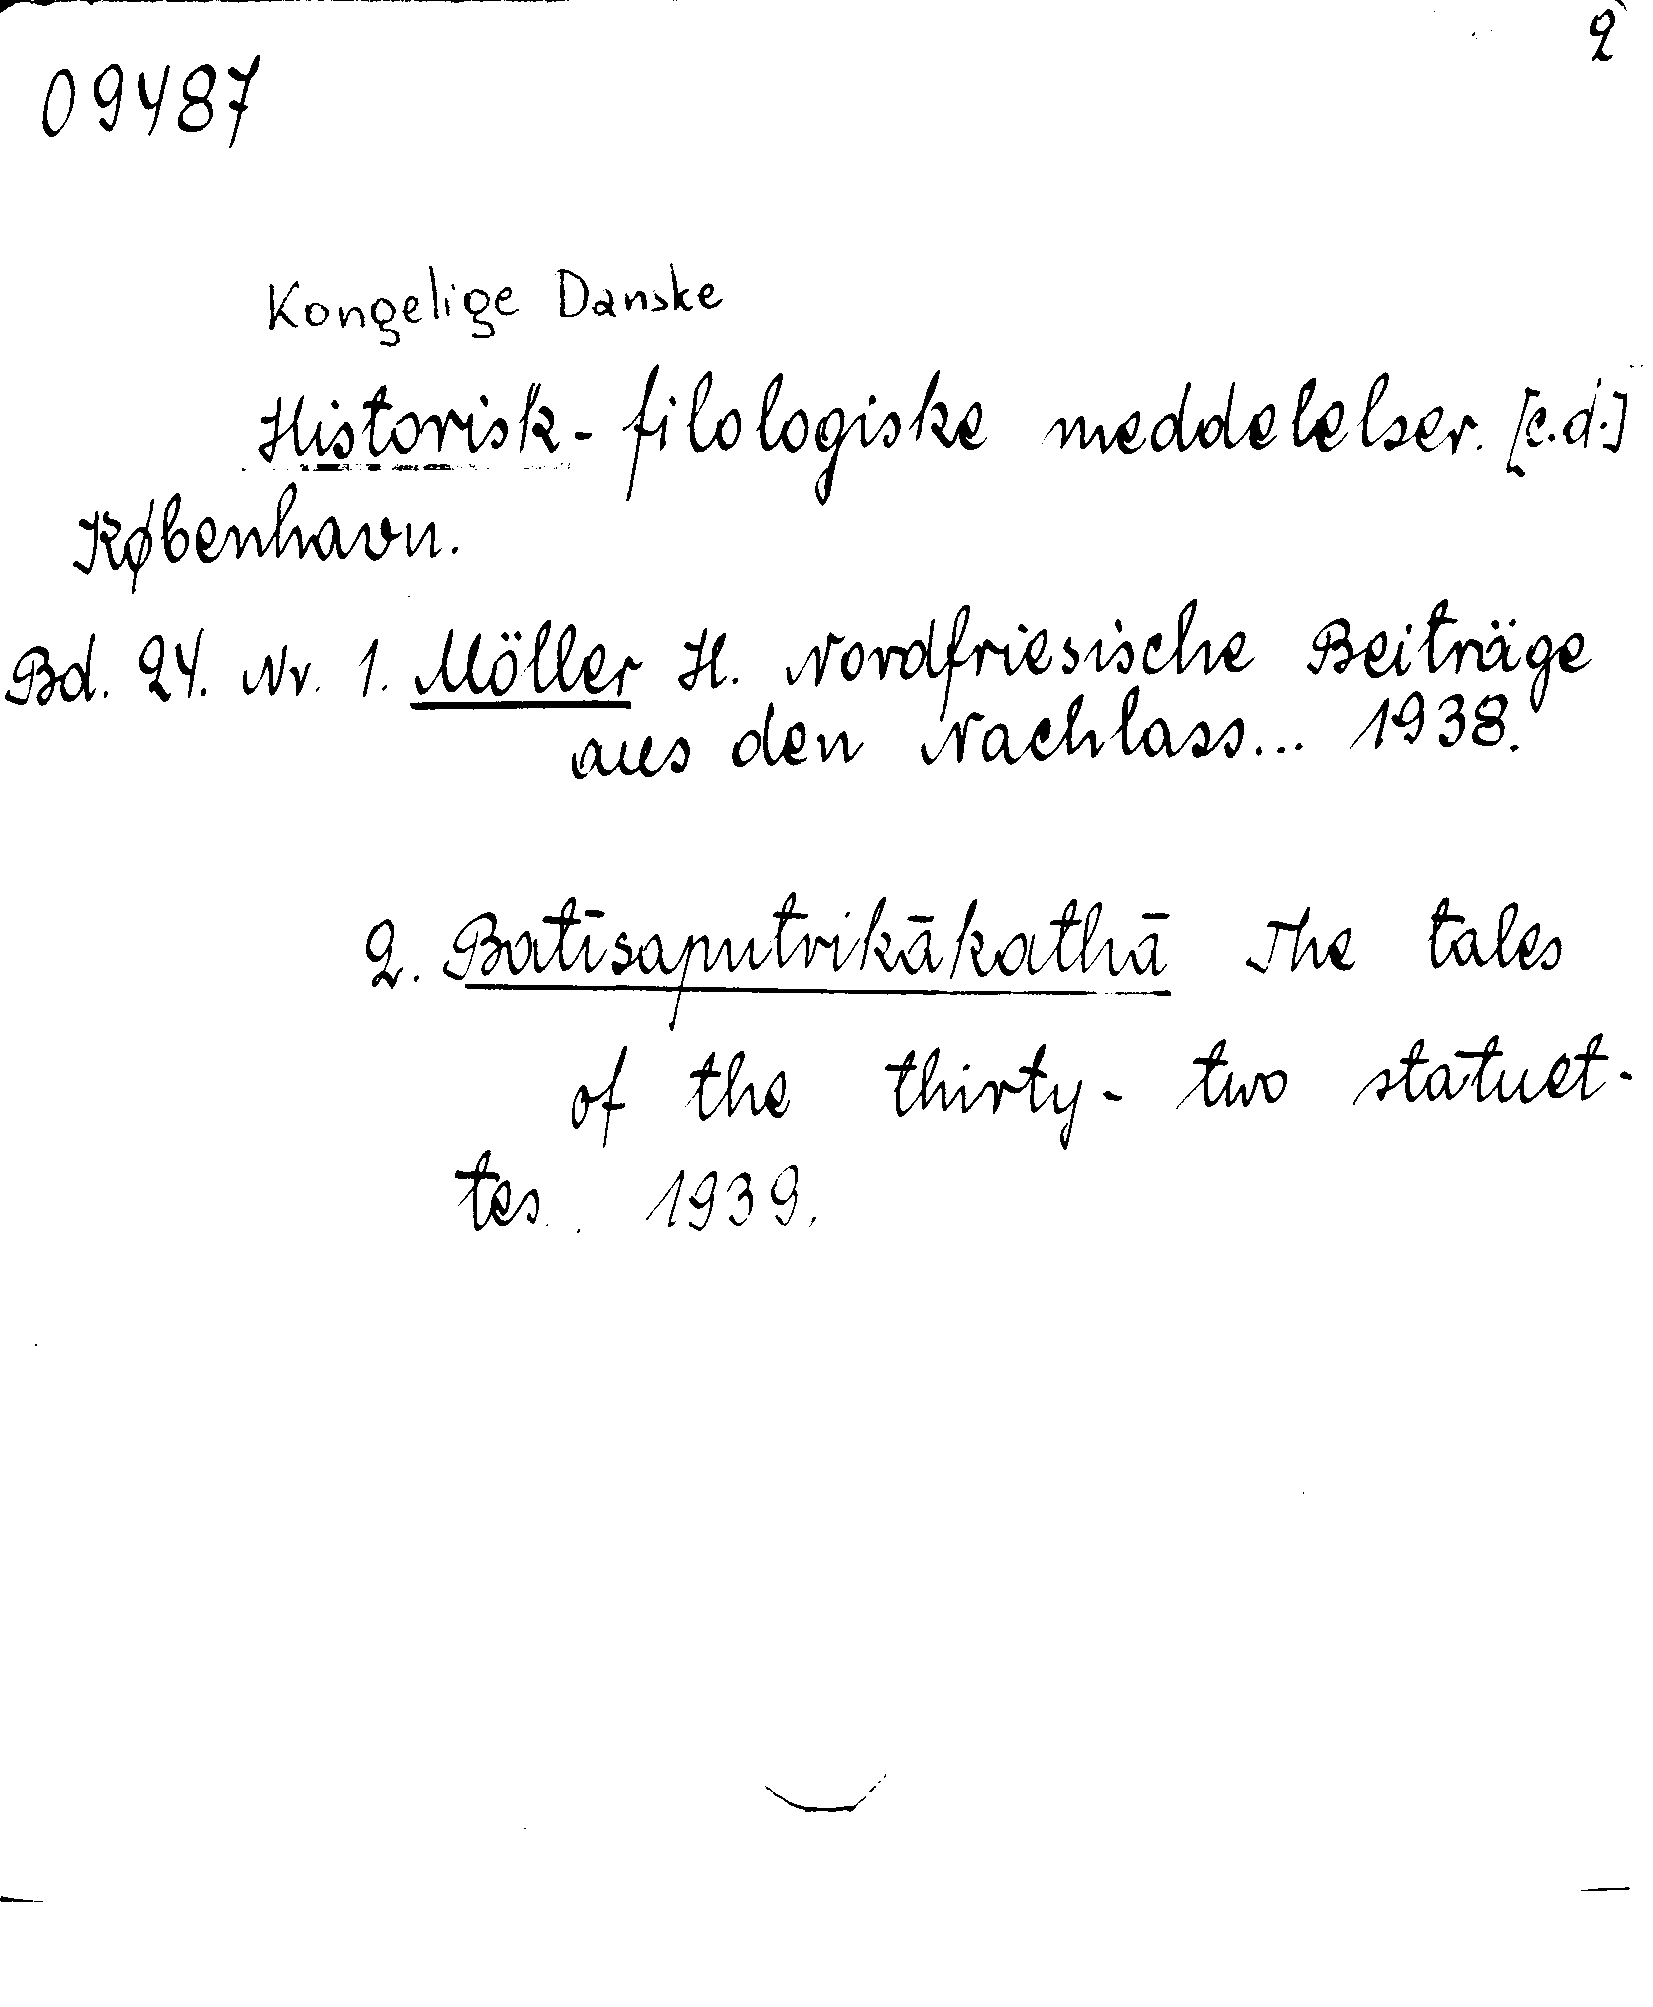 2
09487
Kongelige Danske
Historisk-filologiske meddelelser. [c.d.]
København.
Bd. 24. Nr. 1. Möller H. Nordfriesische Beiträge
aus den Nachlass... 1938.
2. Batīsaputrikākathā The tales
of the thirty-two statuet-
tes. 1939.